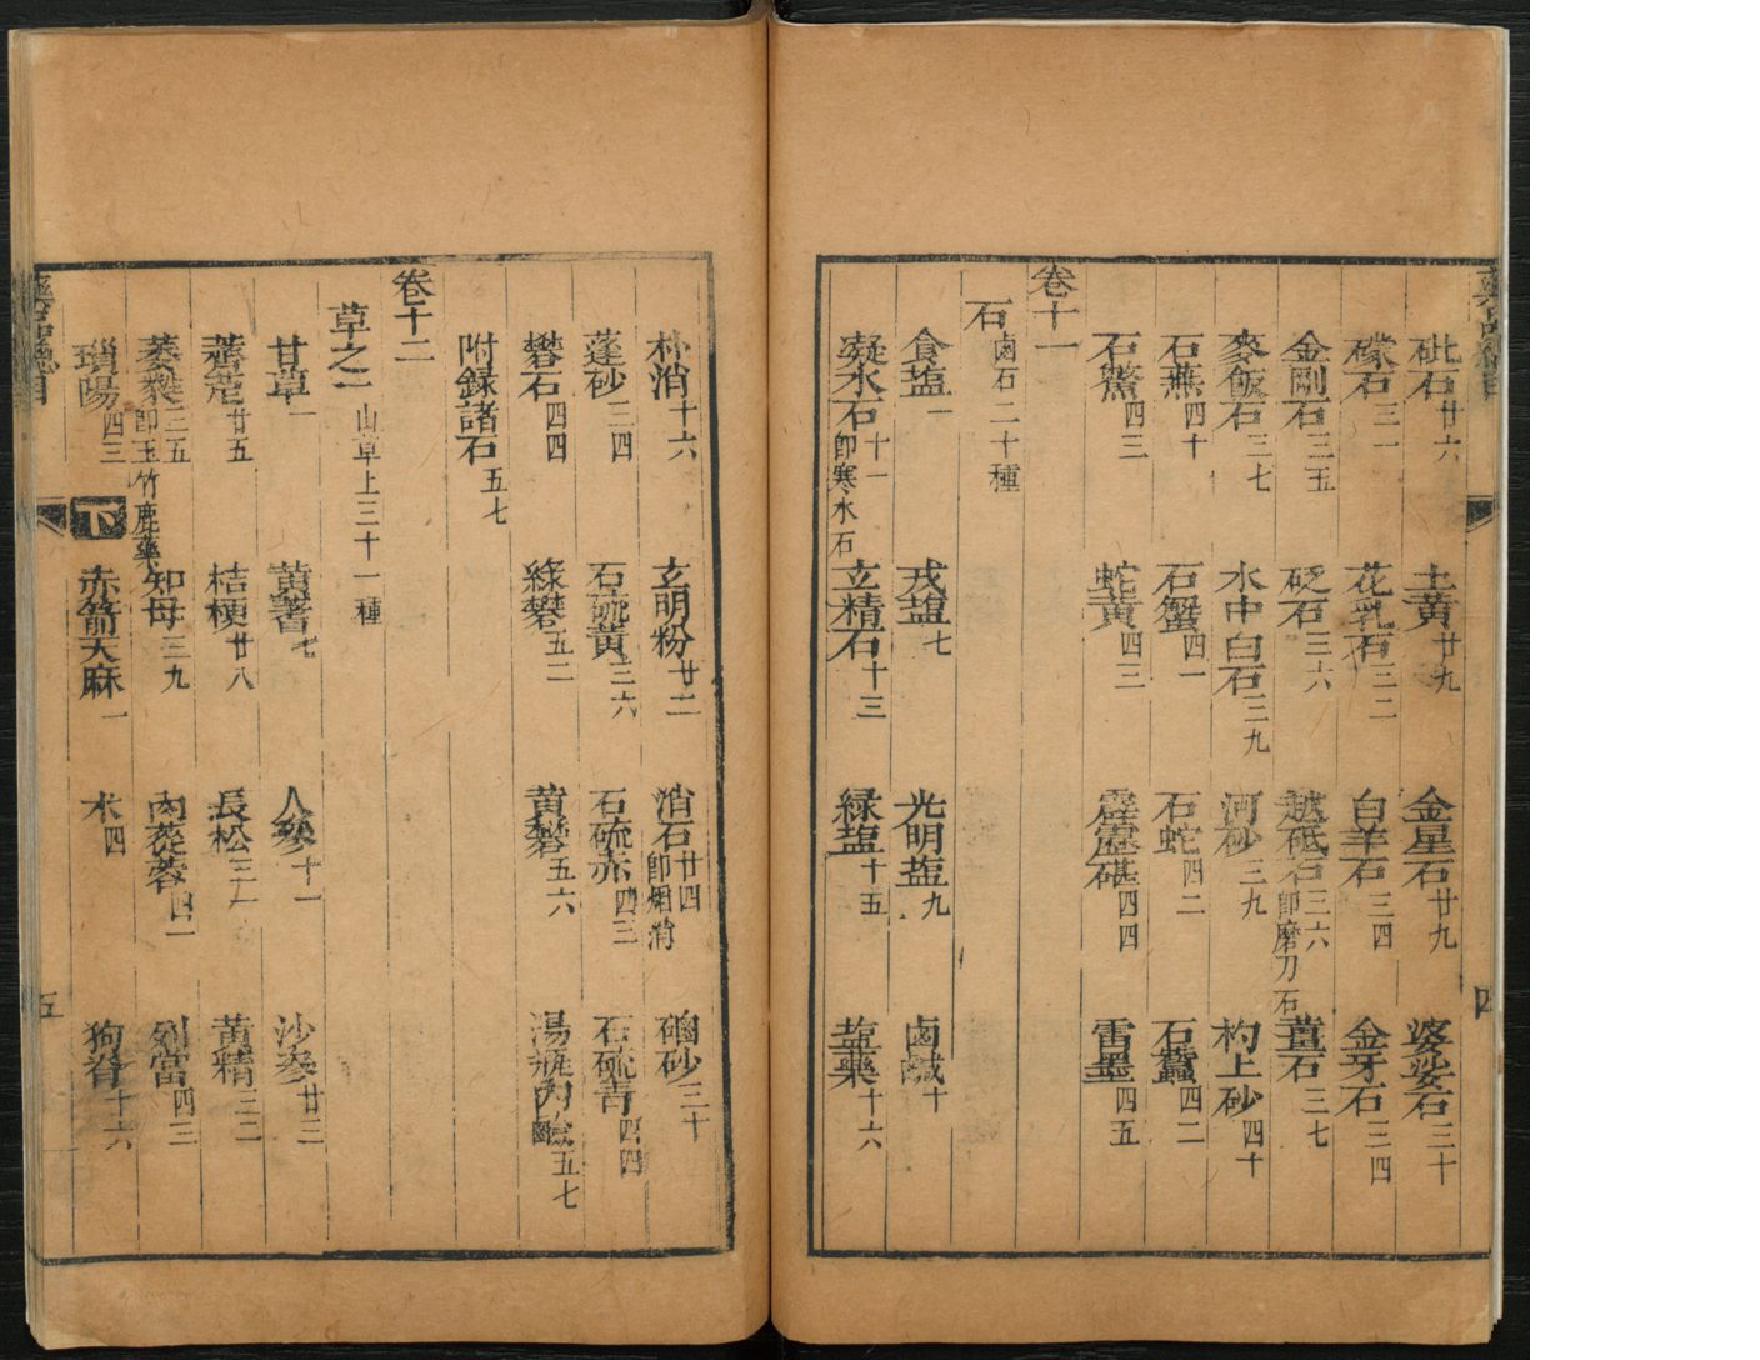 砒石廿六 土黃廿九 金星石廿九 婆娑石三十
礞石三一 花乳石三二 白羊石三四 金牙石三四
金剛石三五 砭石三六 越砥石三六即磨刀石 薑石三七
麥飯石三七 水中白石三九 河砂三九 杓上砂四十
石燕四十 石蟹四一 石蛇四二 石蠶四二
石鱉四三 蛇黃四三 霹靂碪四四 雷墨四五
卷十一
石 鹵石二十種
食塩一 戎塩七 光明塩九 鹵鹹十
凝水石十一即寒水石 玄精石十三 緑塩十五 塩藥十六
朴消十六 玄明粉廿二 消石廿四即焰消 硇砂三十
蓬砂三四 石硫黃三六 石硫赤四三 石硫青四四
礬石四四 綠礬五二 黃礬五六 湯瓶內鹼五七
附録諸石五七
卷十二
草之一 山草上三十一種
甘草一 黃耆七 人參十一 沙參廿三
薺苨廿五 桔梗廿八 長松三一 黃精三二
萎蕤三五即玉竹鹿藥 知母三九 肉蓯蓉四二 列當四三
瑣陽四三 赤箭天麻一 朮四 狗脊十六
下
五